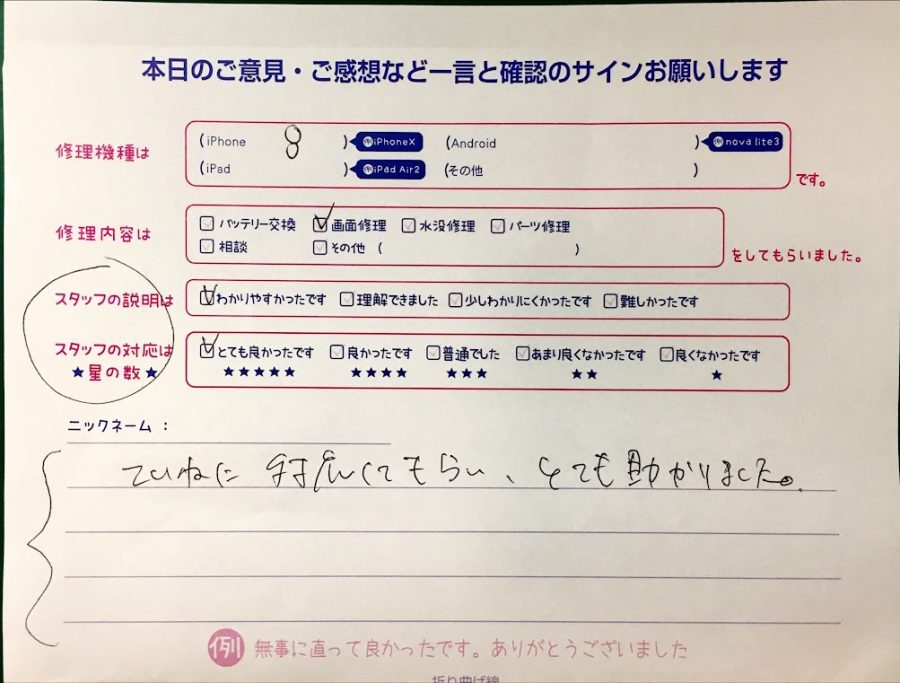 本日のご意見・ご感想など一言と確認のサインお願いします
修理機種は
(iPhone 8 ) 例iPhoneX (Android ) 例nova lite3
(iPad ) 例iPad Air2 (その他 ) です。
修理内容は
バッテリー交換 画面修理 水没修理 パーツ修理
相談 その他 ( ) をしてもらいました。
スタッフの説明は わかりやすかったです 理解できました 少しわかりにくかったです 難しかったです
スタッフの対応は とても良かったです 良かったです 普通でした あまり良くなかったです 良くなかったです
★星の数★ ★★★★★ ★★★★ ★★★ ★★ ★
ニックネーム：
ていねに対応してもらい、とても助かりました。
例 無事に直って良かったです。ありがとうございました
折り曲げ線